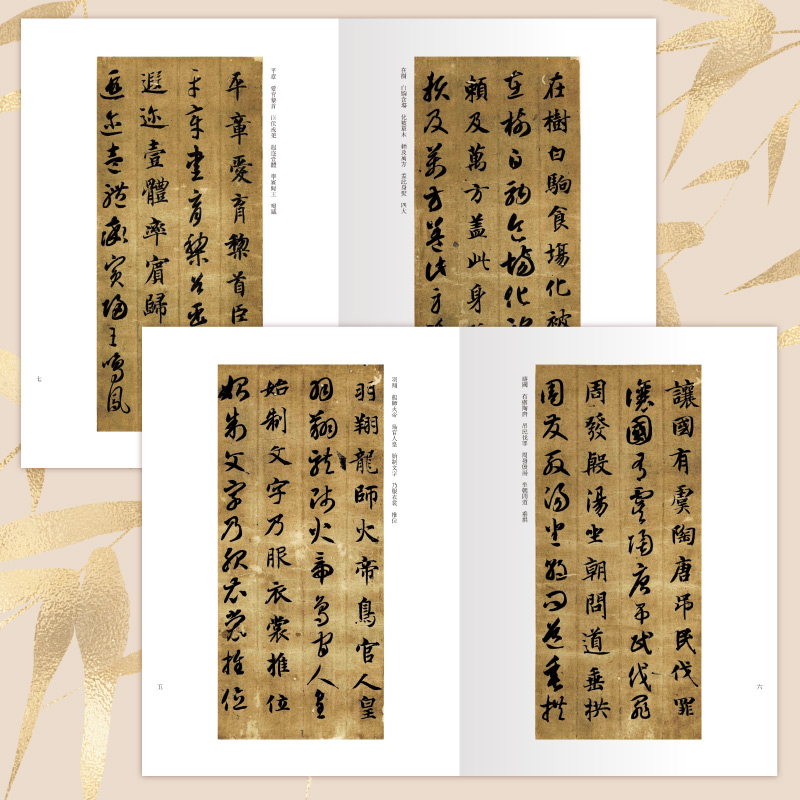 平章 愛育黎首 臣伏戎羌 遐迩壹體 率賓歸王 鳴鳳
平章愛育黎首臣
平章愛育黎首臣
遐迩壹體率賓歸
遐迩壹體率賓歸王鳴鳳
七
在樹 白駒食場 化被草木 賴及萬方 蓋此身髮 四大
在樹白駒食場化被
在樹白駒食場化被
賴及萬方盖此身
賴及萬方盖此身
羽翔 龍師火帝 鳥官人皇 始制文字 乃服衣裳 推位
羽翔龍師火帝鳥官人皇
羽翔龍師火帝鳥官人皇
始制文字乃服衣裳推位
始制文字乃服衣裳推位
五
讓國 有虞陶唐 吊民伐罪 周發殷湯 坐朝問道 垂拱
讓國有虞陶唐吊民伐罪
讓國有虞陶唐吊民伐罪
周發殷湯坐朝問道垂拱
周發殷湯坐朝問道垂拱
六